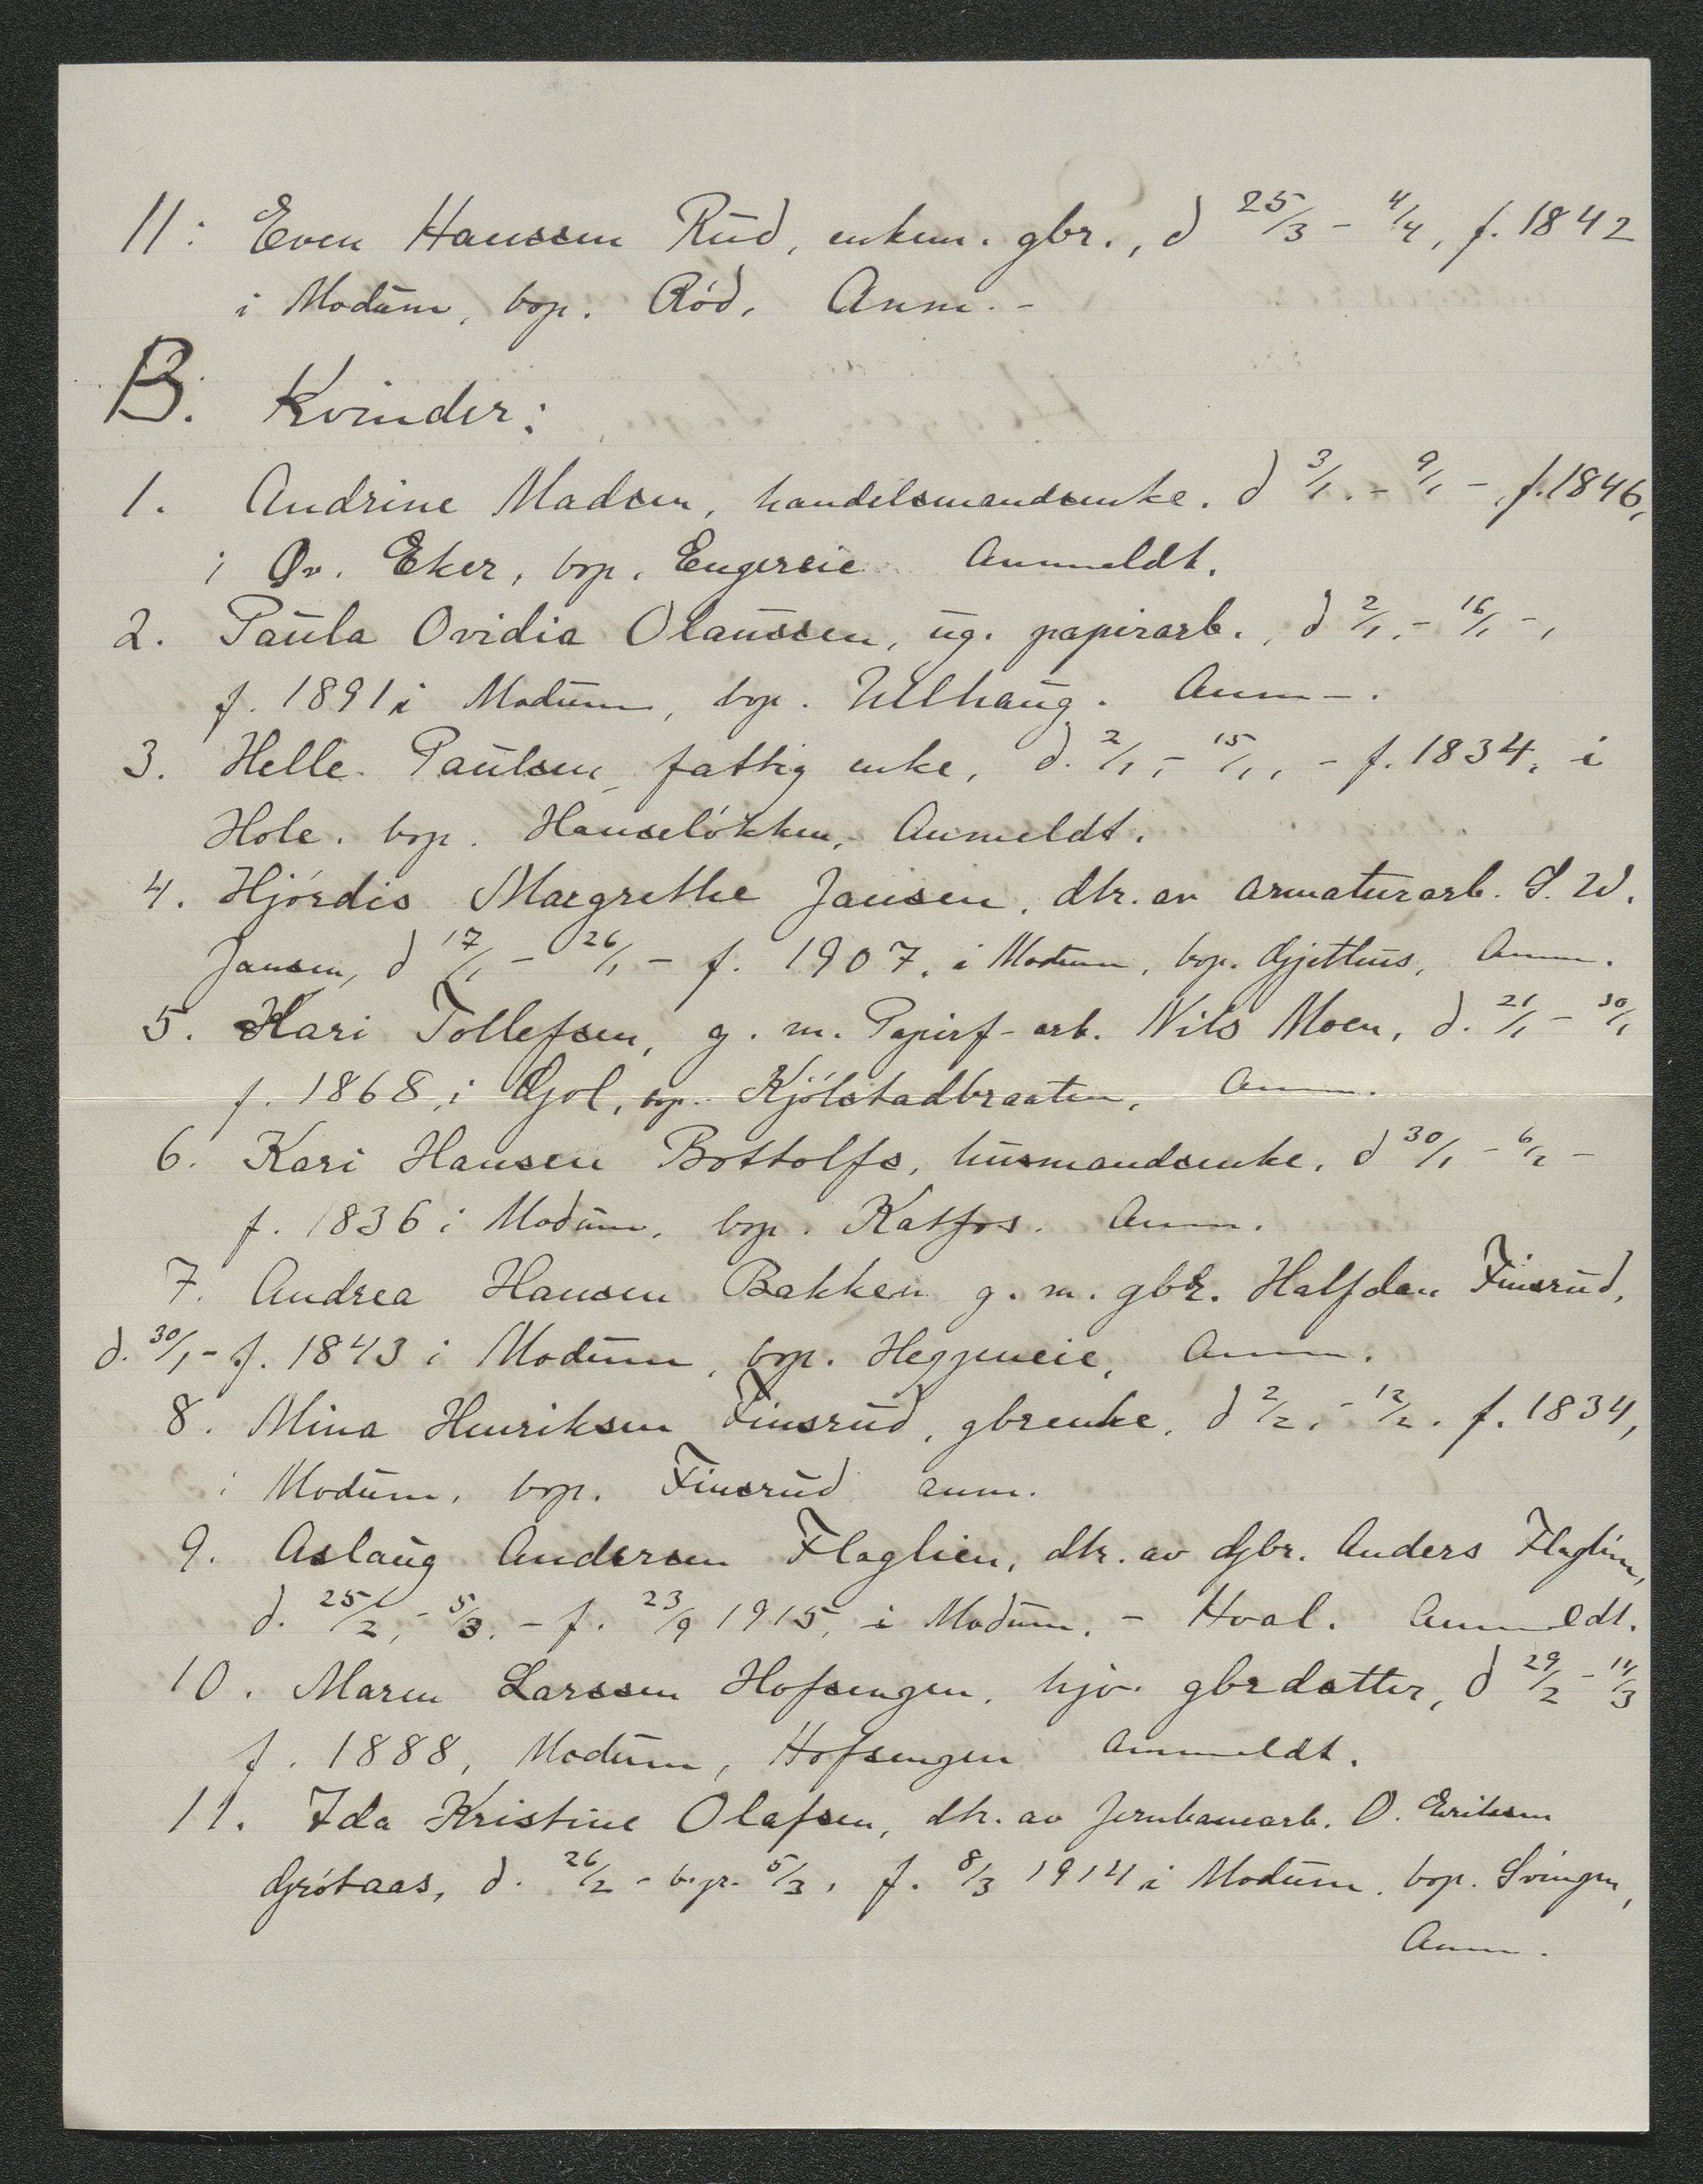 11: Even Hanssen Rud, enkem. gbr., d 25/3 - 4/4, f. 1842
i Modum, bop. Rød, Anm. -
B. Kvinder:
1. Andrine Madsen, handelsmandsenke. d 3/1. - 9/1 - , f. 1846,
i Øv. Eker, bop. Engersie Anmeldt.
2. Paula Ovidia Olaussen, ug. papirarb., d 2/1. - 16/1 - ,
f. 1891 i Modum, bop. Ulhaug. Anm - .
3. Helle Paulsen, fattig enke, d. 2/1, - 15/1, - f. 1834, i
Hole. bop. Hanseløkken, Anmeldt.
4. Hjørdis Margrethe Jansen, dtr. av armaturarb. S. W.
Jansen, d 17/1 - 26/1 - f. 1907, i Modum, bop. Gjethus, Anm.
5. Kari Tollefsen, g. m. Papirf-arb. Nils Moen, d. 21/1 - 30/1
f. 1868, i Gol, bop. Kjølstadbraaten, Anm.
6. Kari Hansen Bottolfs, husmandsenke, d 30/1 - 6/2 -
f. 1836 i Modum, bop. Katfos. Anm.
7. Andrea Hansen Bakken g. m. gbr. Halfdan Finsrud,
d. 30/1 - f. 1843 i Modum, bop. Heggeneie, Anm.
8. Mina Henriksen Finsrud, gbrenke, d 2/2, - 12/2. f. 1834,
i Modum, bop. Finsrud anm.
9. Aslaug Andersen Flaglien, dtr. av Gbr. Anders Flaglien,
d. 25/2, - 5/3. - f. 23/9 1915, i Modum, - Hval. Anmeldt.
10. Maren Larssen Hofsengen, hjv. gbrdatter, d 29/2 - 14/3
f. 1888, Modum, Hofsengen Anmeldt.
11. Ida Kristine Olafsen, dtr. av Jernbanearb. O. Eriksen
Grøtaas, d. 26/2 - begr. 5/3, f. 8/3 1914 i Modum, bop. Svingen,
Anm.